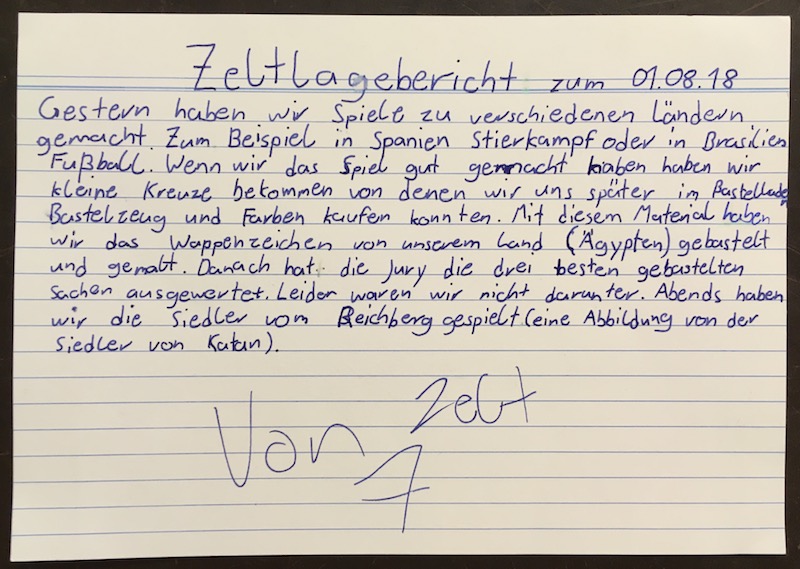 Zeltlagebericht zum 01.08.18
Gestern haben wir Spiele zu verschiedenen Ländern
gemacht. Zum Beispiel in Spanien Stierkampf oder in Brasilien
Fußball. Wenn wir das Spiel gut gemacht haben haben wir
kleine Kreuze bekommen von denen wir uns später im Bastelladen
Bastelzeug und Farben kaufen konnten. Mit diesem Material haben
wir das Wappenzeichen von unserem Land (Ägypten) gebastelt
und gemalt. Danach hat die Jury die drei besten gebastelten
Sachen ausgewertet. Leider waren wir nicht darunter. Abends haben
wir die Siedler vom Reichberg gespielt (eine Abbildung von der
Siedler von Katan).
Von Zelt
7